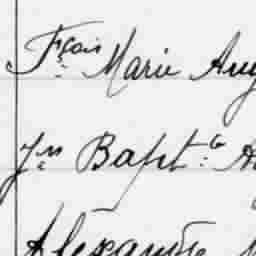 Fçois Marie Aug
Jn Bapt.te A
Alexandre